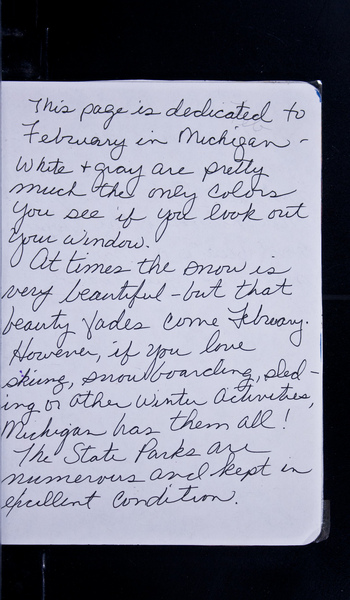 This page is dedicated to
February in Michigan -
White + gray are pretty
much the only colors
you see if you look out
your window.
At times the snow is
very beautiful - but that
beauty fades come February.
However, if you love
skiing, snow boarding, sled-
ing or other winter activities,
Michigan has them all!
The State Parks are
numerous and kept in
excellent condition.